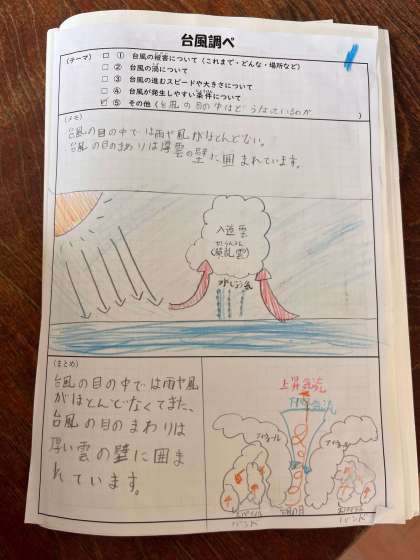 台風調べ
(テーマ) □ ① 台風の被害について（これまで・どんな・場所など）
□ ② 台風の渦について
□ ③ 台風の進むスピードや大きさについて
□ ④ 台風が発生しやすい条件について
☑ ⑤ その他（台風の目の中はどうなっているのか）
(メモ)
台風の目の中では雨や風がほとんどない。
台風の目のまわりは厚い雲の壁に囲まれています。
入道雲
(積乱雲)
水じょう気
(まとめ)
台風の目の中では雨や風
がほとんどなくてきた、
台風の目のまわりは
厚い雲の壁に囲ま
れています。
上昇気流
下降気流
バンド
バンド